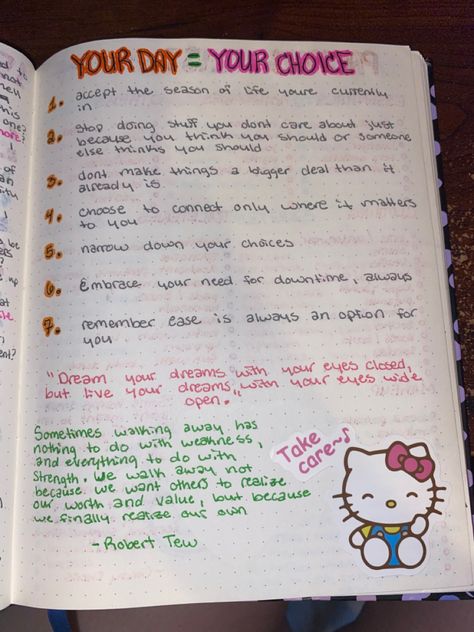 YOUR DAY = YOUR CHOICE
1. accept the season of life youre currently
in
2. stop doing stuff you dont care about just
because you think you should or someone
else thinks you should
3. dont make things a bigger deal than it
already is
4. choose to connect only where it matters
to you
5. narrow down your choices
6. embrace your need for downtime, always
7. remember ease is always an option for
you
"Dream your dreams with your eyes closed,
but live your dreams with your eyes wide
open."
Sometimes walking away has
nothing to do with weakness,
and everything to do with
strength. We walk away not
because we want others to realize
our worth and value, but because
we finally realize our own
- Robert Tew
Take
care~♪